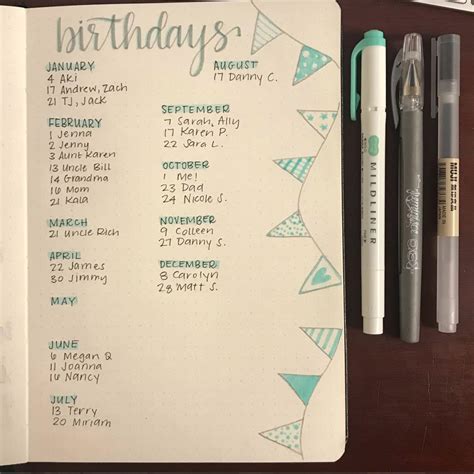 birthdays
JANUARY
4 Aki
17 Andrew, Zach
21 TJ, Jack
FEBRUARY
1 Jenna
2 Jenny
3 Aunt Karen
13 Uncle Bill
14 Grandma
16 Mom
21 Kala
MARCH
21 Uncle Rich
APRIL
22 James
30 Jimmy
MAY
JUNE
6 Megan Q
11 Joanna
16 Nancy
JULY
13 Terry
20 Miriam
AUGUST
17 Danny C.
SEPTEMBER
7 Sarah, Ally
17 Karen P.
22 Sara L.
OCTOBER
1 Me!
23 Dad
24 Nicole S.
NOVEMBER
9 Colleen
27 Danny S.
DECEMBER
8 Carolyn
28 Matt S.
MILDLINER
MUJI